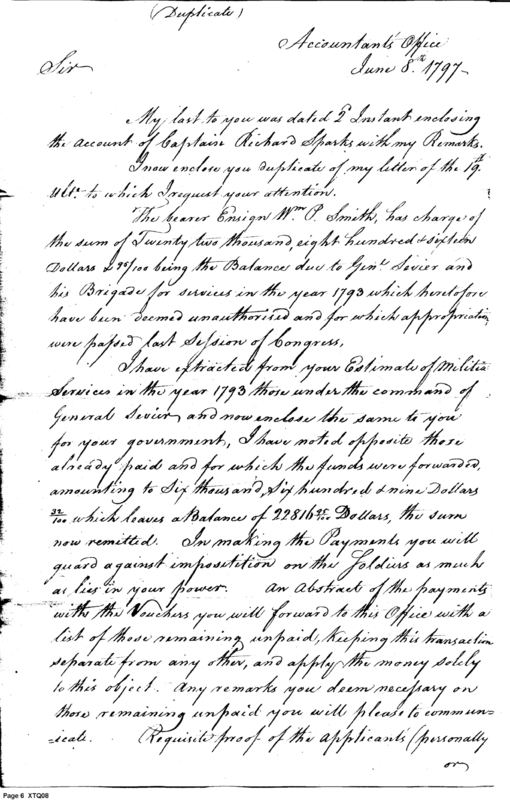 (Duplicate)
Accountant's Office
Sir June 8.th 1797
My last to you was dated 2d Instant enclosing
the account of Captain Richard Sparks with my Remarks.
I now enclose you duplicate of my letter of the 19th
Ulto. to which I request your attention.
The bearer Ensign Wm P. Smith, has charge of
the sum of Twenty two thousand, eight hundred & sixteen
Dollars & 95/100 being the Balance due to Genl Sevier and
his Brigade for services in the year 1793 which heretofore
have been deemed unauthorised and for which appropriations
were passed last Session of Congress,
I have extracted from your Estimate of Militia
Services in the year 1793 those under the command of
General Sevier and now enclose the same to you
for your government, I have noted opposite those
already paid and for which the funds were forwarded,
amounting to Six thousand, Six hundred & nine Dollars
32/100 which leaves a Balance of 22816 95/100 Dollars, the sum
now remitted. In making the Payments you will
guard against impostition on the Soldiers as much
as lies in your power. An Abstract of the payments
with the Vouchers you will forward to this Office with a
list of those remaining unpaid, keeping this transaction
separate from any other, and apply the money solely
to this object. Any remarks you deem necessary on
those remaining unpaid you will please to commun=
=icate. Requisite proof of the applicants (personally
or
Page 6 XTQ08